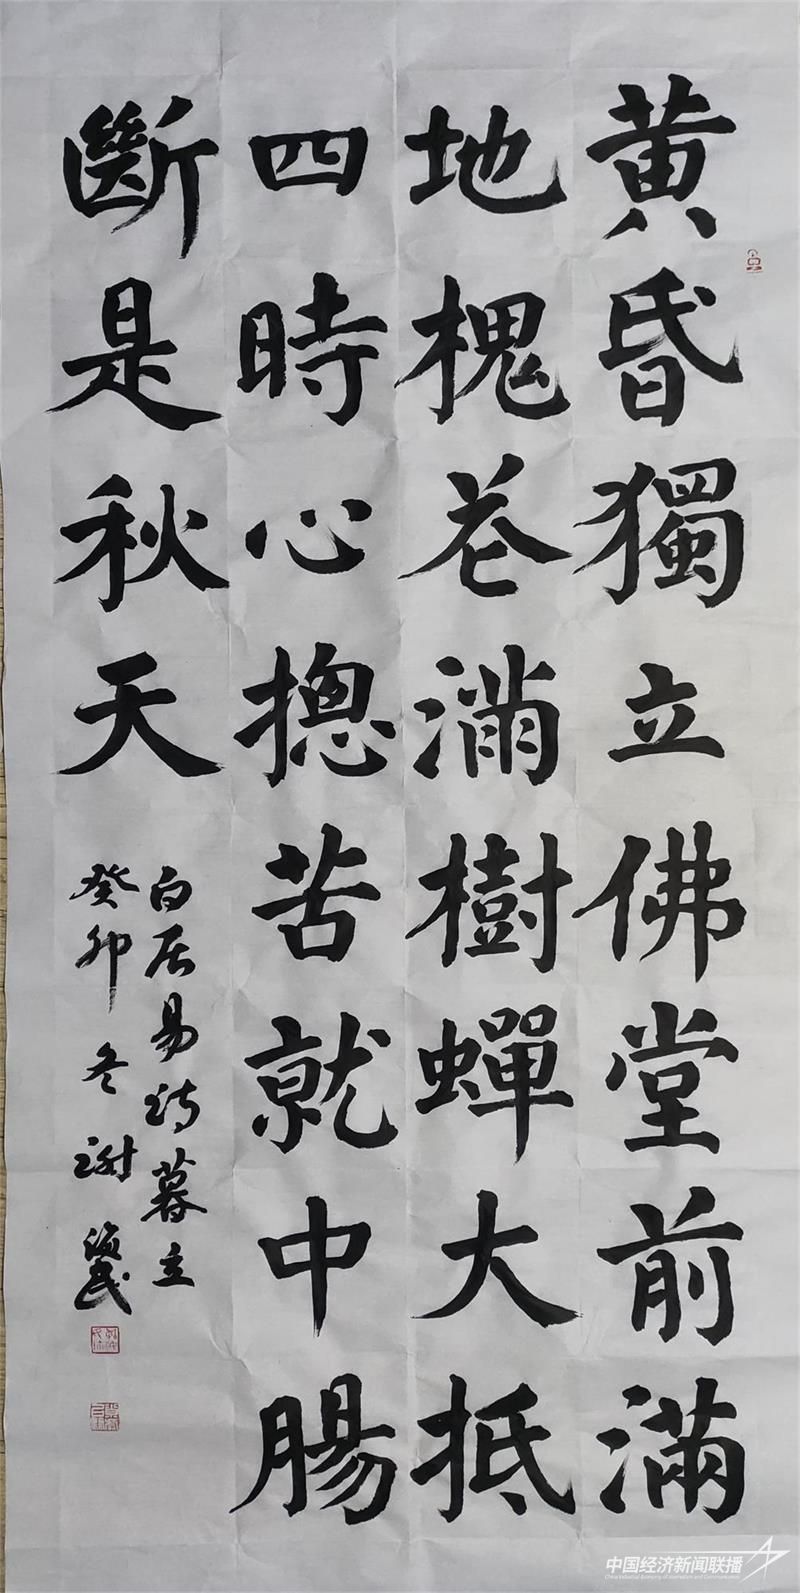 黄昏獨立佛堂前滿
地槐花滿樹蟬大抵
四時心摠苦就中腸
斷是秋天
白居易詩暮立
癸卯冬謝海民
中国经济新闻联播